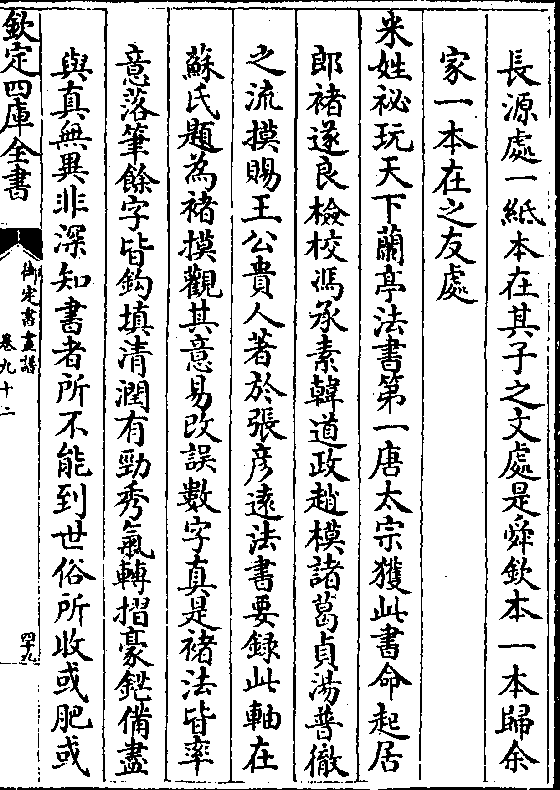 長源處一紙本在其子之文處是舜欽本一本歸余
家一本在之友處
米姓祕玩天下蘭亭法書第一唐太宗獲此書命起居
郎褚遂良檢校馮承素韓道政趙模諸葛貞湯普徹
之流摸賜王公貴人著於張彦遠法書要録此軸在
蘇氏題為褚摸觀其意易改誤數字真是褚法皆率
意落筆餘字皆鈎填清潤有勁秀氣轉摺豪鋩備盡
與真無異非深知書者所不能到世俗所收或肥或
欽定四庫全書
御定書畫譜
卷九十二
四十九